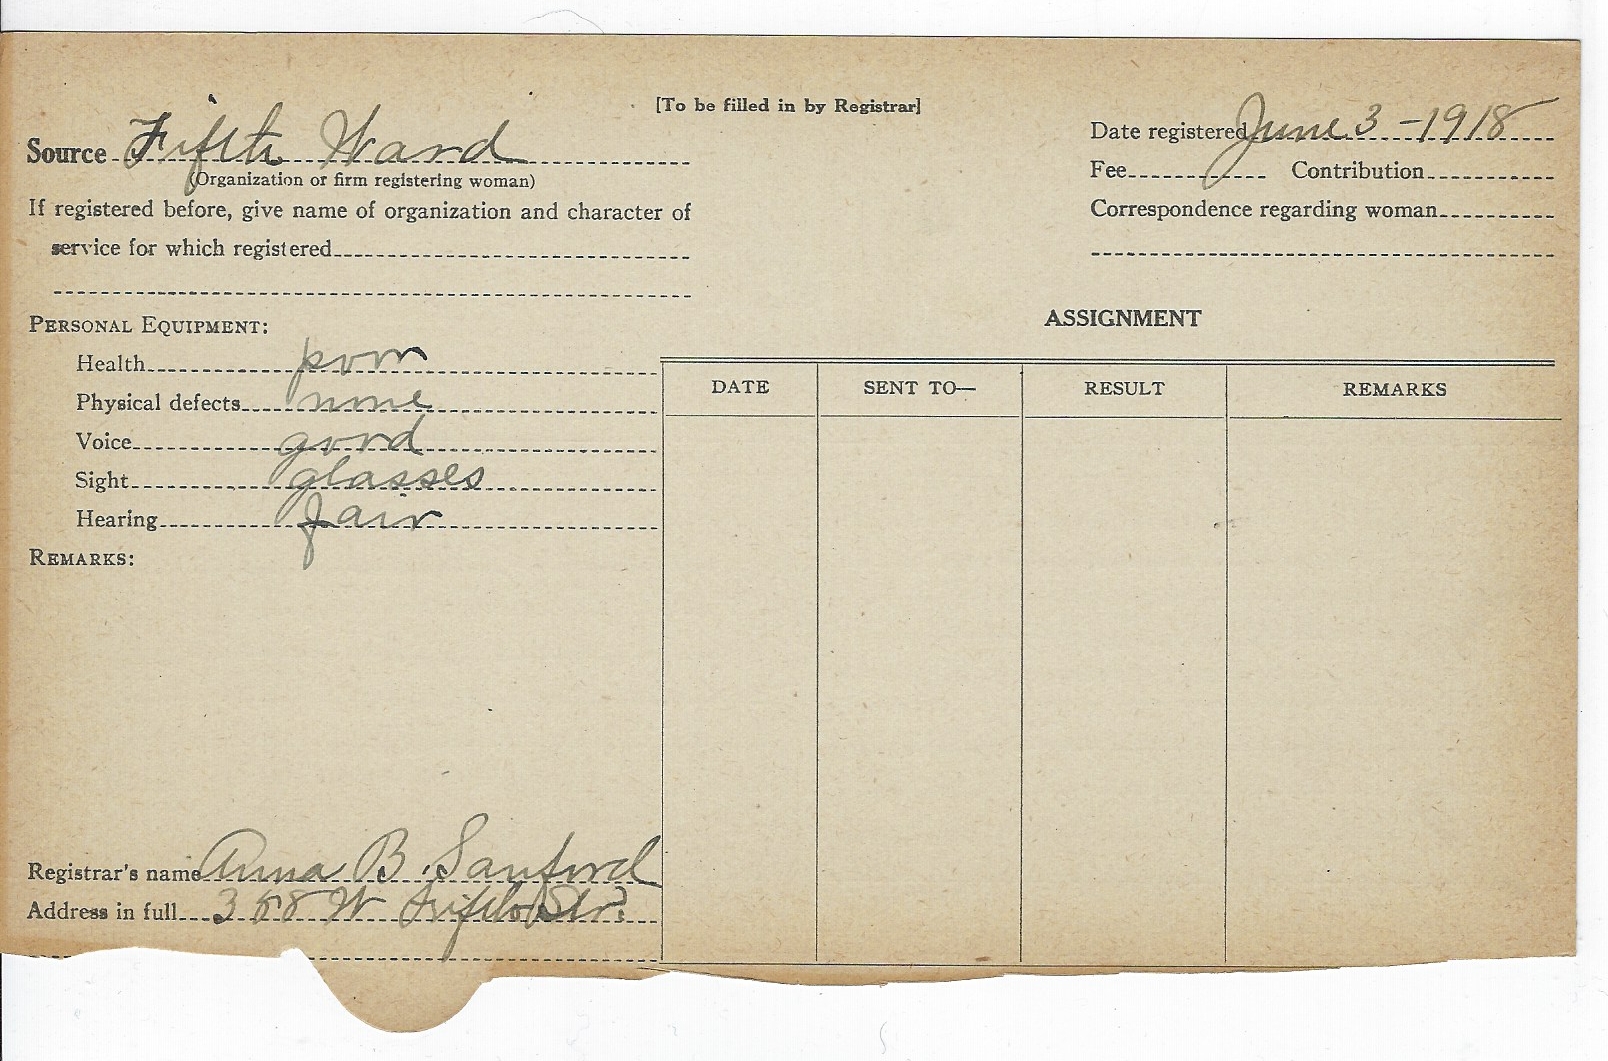 [To be filled in by Registrar]
Source Fifth Ward
(Organization or firm registering woman)
If registered before, give name of organization and character of
service for which registered
Date registered June 3 - 1918
Fee Contribution
Correspondence regarding woman
PERSONAL EQUIPMENT:
Health poor
Physical defects none
Voice good
Sight glasses
Hearing fair
REMARKS:
Registrar's name Anna B. Sanford
Address in full 358 W Fifth Str.
ASSIGNMENT
DATE SENT TO— RESULT REMARKS